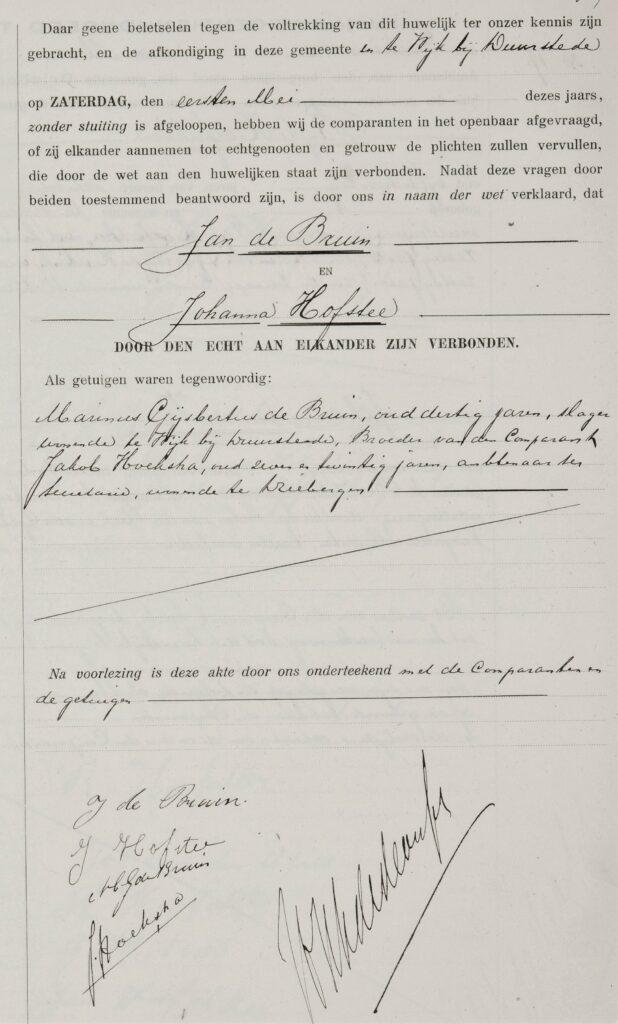 Daar geene beletselen tegen de voltrekking van dit huwelijk ter onzer kennis zijn
gebracht, en de afkondiging in deze gemeente en te Wijk bij Duurstede
op ZATERDAG, den eersten Mei dezes jaars,
zonder stuiting is afgeloopen, hebben wij de comparanten in het openbaar afgevraagd,
of zij elkander aannemen tot echtgenooten en getrouw de plichten zullen vervullen,
die door de wet aan den huwelijken staat zijn verbonden. Nadat deze vragen door
beiden toestemmend beantwoord zijn, is door ons in naam der wet verklaard, dat
Jan de Bruin
EN
Johanna Hofstee
DOOR DEN ECHT AAN ELKANDER ZIJN VERBONDEN.
Als getuigen waren tegenwoordig:
Marinus Gijsbertus de Bruin, oud dertig jaren, slager
wonende te Wijk bij Duurstede, Broeder van den Comparant
Jakob Hoeksha, oud zeven en twintig jaren, ambtenaar ter
secretarie, wonende te Driebergen
Na voorlezing is deze akte door ons onderteekend met de Comparanten en
de getuigen
J de Bruin.
J Hofstee
M G de Bruin
J. Hoeksha